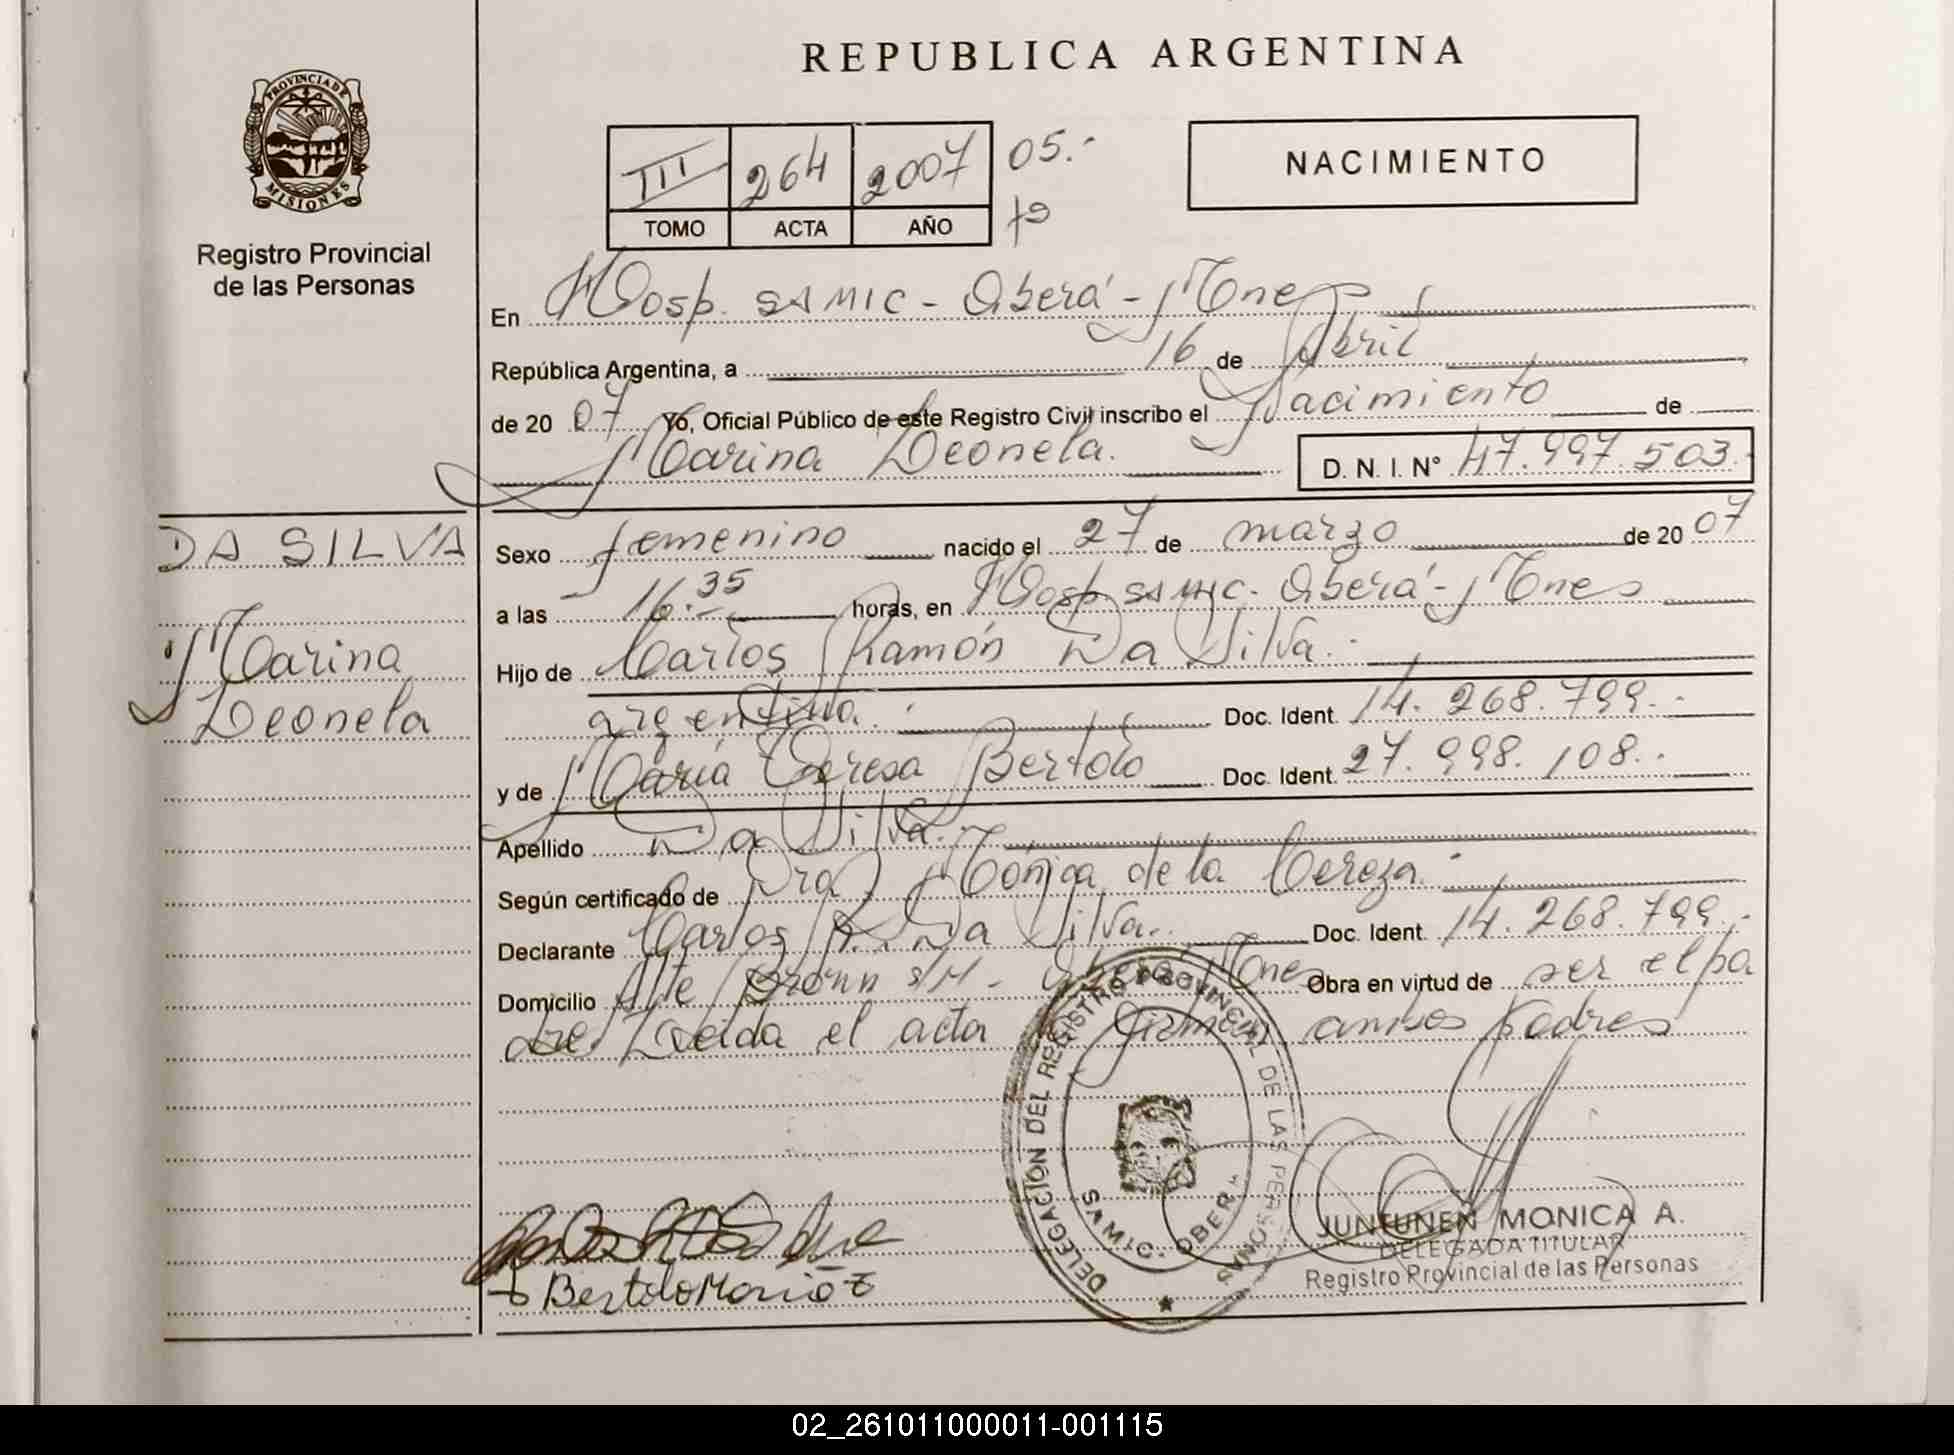 REPUBLICA ARGENTINA
PROVINCIA DE
MISIONES
Registro Provincial
de las Personas
III 264 2007 05.-
TOMO ACTA AÑO
NACIMIENTO
En Hosp. SAMIC - Oberá - Mnes
República Argentina, a 16 de Abril
de 2007 Yo, Oficial Público de este Registro Civil inscribo el Nacimiento de
Marina Leonela. D. N. I. N° 47.997.503.-
DA SILVA
Marina
Leonela
Sexo femenino nacido el 27 de marzo de 2007
a las 16:35 horas, en Hosp. SAMIC - Oberá - Mnes
Hijo de Carlos Ramón Da Silva.-
argentino. Doc. Ident. 14.268.799.-
y de María Teresa Bertolo Doc. Ident. 27.998.108.-
Apellido Da Silva.
Según certificado de Dra. Mónica de la Cereza.-
Declarante Carlos R. Da Silva. Doc. Ident. 14.268.799.-
Domicilio Alte Brown s/n - Oberá Mnes Obra en virtud de ser el pa
dre. Leída el acta firman ambos padres
DELEGACIÓN DEL REGISTRO PROVINCIAL DE LAS PERSONAS
SAMIC. OBERA
Bertolo Maria T
JUNTUNEN MONICA A.
DELEGADA TITULAR
Registro Provincial de las Personas
02_261011000011-001115